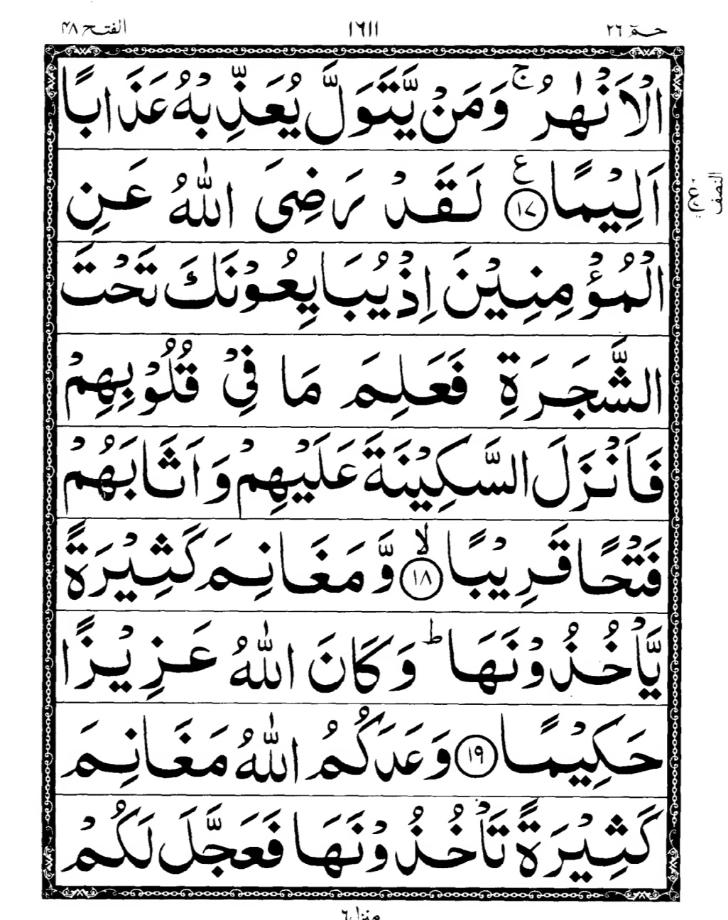 حٰمٓ ٢٦ ١٦١١ الفتح ٤٨
الْاَنْهٰرُ ۚ وَمَنْ يَّتَوَلَّ يُعَذِّبْهُ عَذَابًا
اَلِيْمًا ﴿١٧﴾ ع لَقَدْ رَضِىَ اللّٰهُ عَنِ
النصف
الْمُؤْمِنِيْنَ اِذْ يُبَايِعُوْنَكَ تَحْتَ
الشَّجَرَةِ فَعَلِمَ مَا فِيْ قُلُوْبِهِمْ
فَاَنْزَلَ السَّكِيْنَةَ عَلَيْهِمْ وَاَثَابَهُمْ
فَتْحًا قَرِيْبًا ﴿١٨﴾ ۙ وَّمَغَانِمَ كَثِيْرَةً
يَّاْخُذُوْنَهَا ؕ وَكَانَ اللّٰهُ عَزِيْزًا
حَكِيْمًا ﴿١٩﴾ وَعَدَكُمُ اللّٰهُ مَغَانِمَ
كَثِيْرَةً تَاْخُذُوْنَهَا فَعَجَّلَ لَكُمْ
منزل ٦